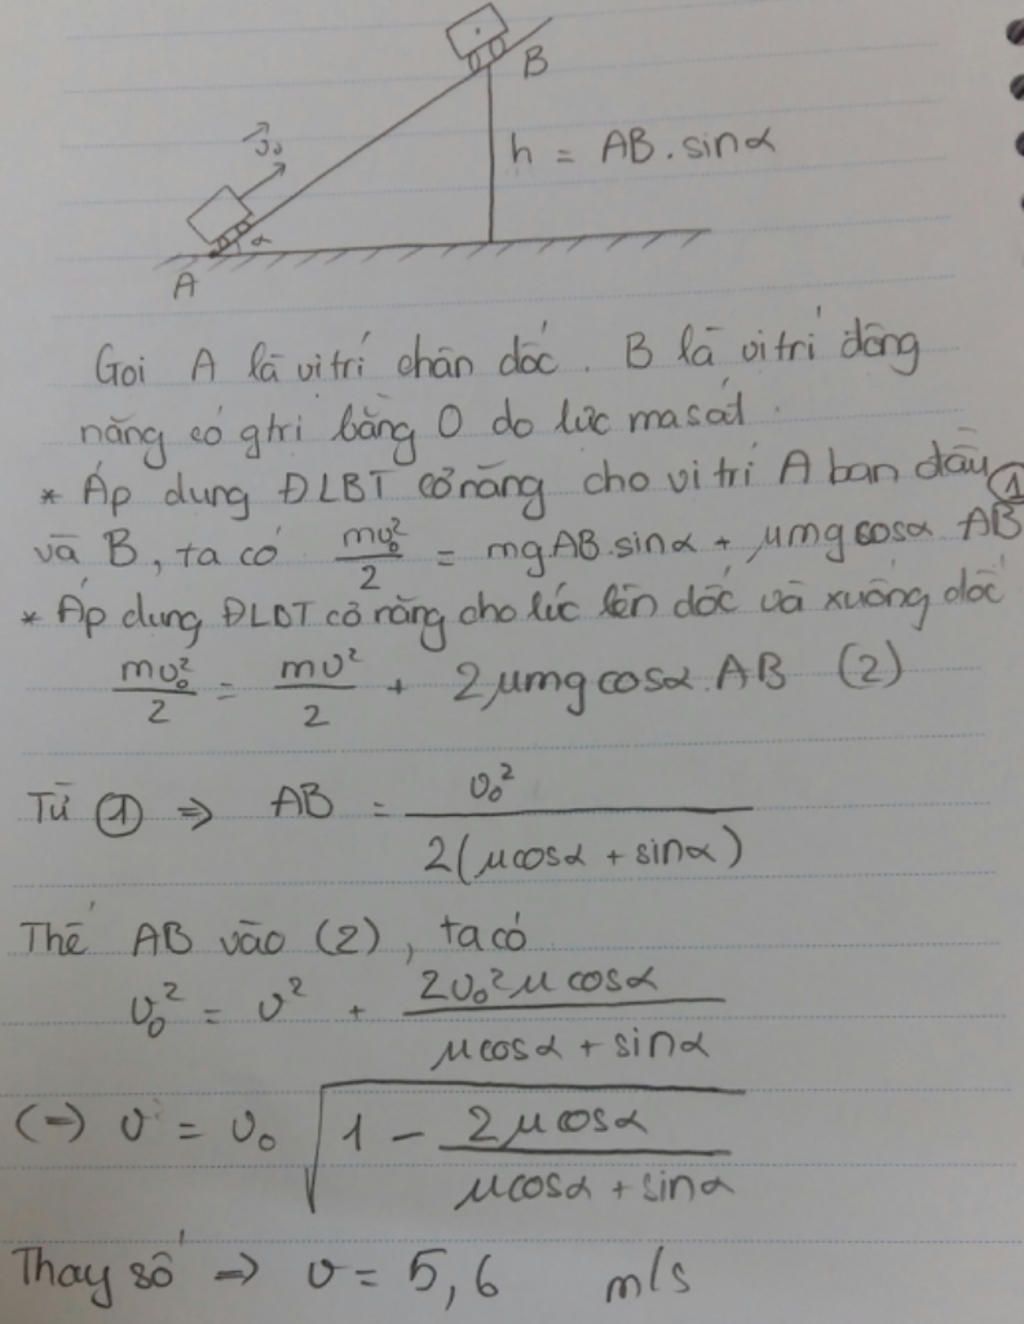 B
v₀
h = AB.sinα
α
A
Gọi A là vị trí chân dốc. B là vị trí động
năng có gtrị bằng 0 do lực masát.
* Áp dụng ĐLBT cơ năng cho vị trí A ban đầu
và B, ta có mv₀²/2 = mgAB.sinα + μmgcosα AB ①
* Áp dụng ĐLBT cơ năng cho lúc lên dốc và xuống dốc
mv₀²/2 = mv²/2 + 2μmgcosα.AB (2)
Từ ① ⇒ AB = v₀²/2(μcosα + sinα)
Thế AB vào (2), ta có
v₀² = v² + 2v₀²μcosα/μcosα + sinα
(=) v = v₀ √(1 - 2μcosα/μcosα + sinα)
Thay số ⇒ v = 5,6 m/s